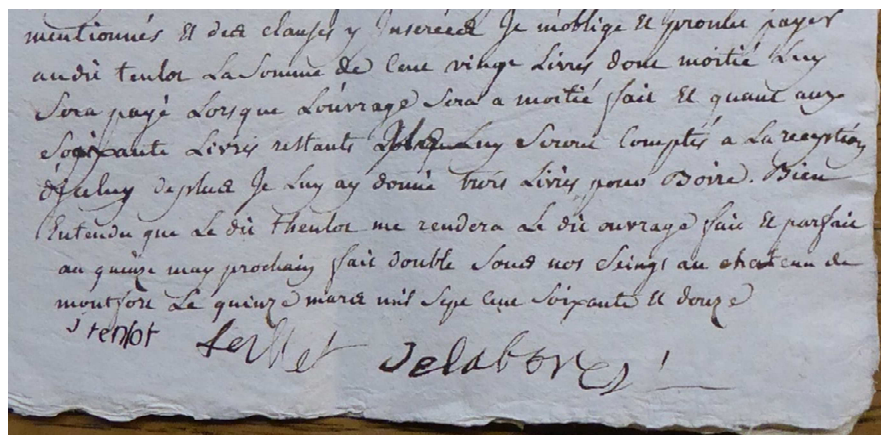 mentionnés et des clauses y Inserées Je m'oblige et promet payer
audit tenlot La Somme de Cent vingt Livres dont moitié Luy
Sera payé Lorsque L'ouvrage Sera a moitié fait et quant aux
Soixante Livres restants Ils Luy Seront Comptés a La reception
d'jceluy deplus Je Luy ay donné trois Livres pour Boire. Bien
Entendu que Le dit thenlot me rendera Le dit ouvrage fait et parfait
au quinze may prochain fait double Sous nos Seings au chateau de
montfort Le quinze mars mil Sept Cent Soixante et douze
tenlot